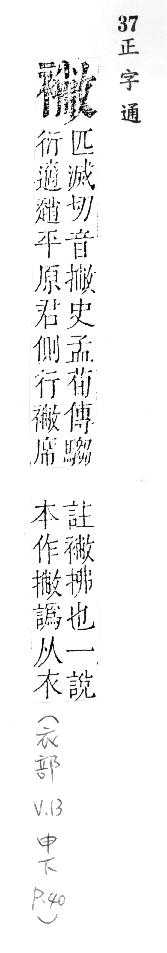 37正字通
襒
匹滅切音撇史孟荀傳騶
衍適趙平原君側行襒席
註襒拂也一說
本作撇譌从衣
(衣部 V.13 申下 P.40)